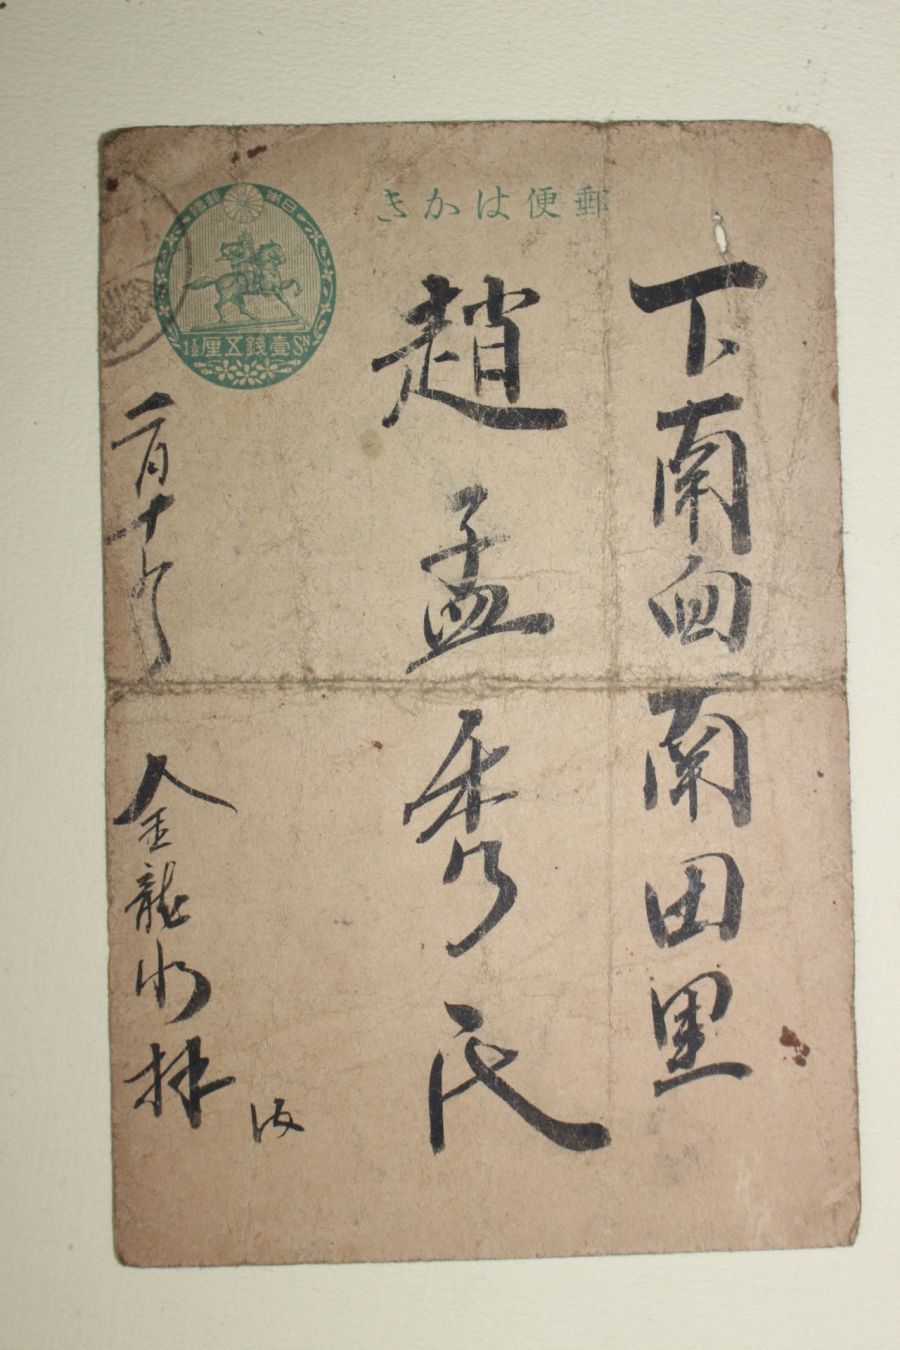 郵便はかき
日本郵便
1½ 壹錢五厘 Sɴ
下南面南田里
趙孟秀氏
二月十九
金龍水拜